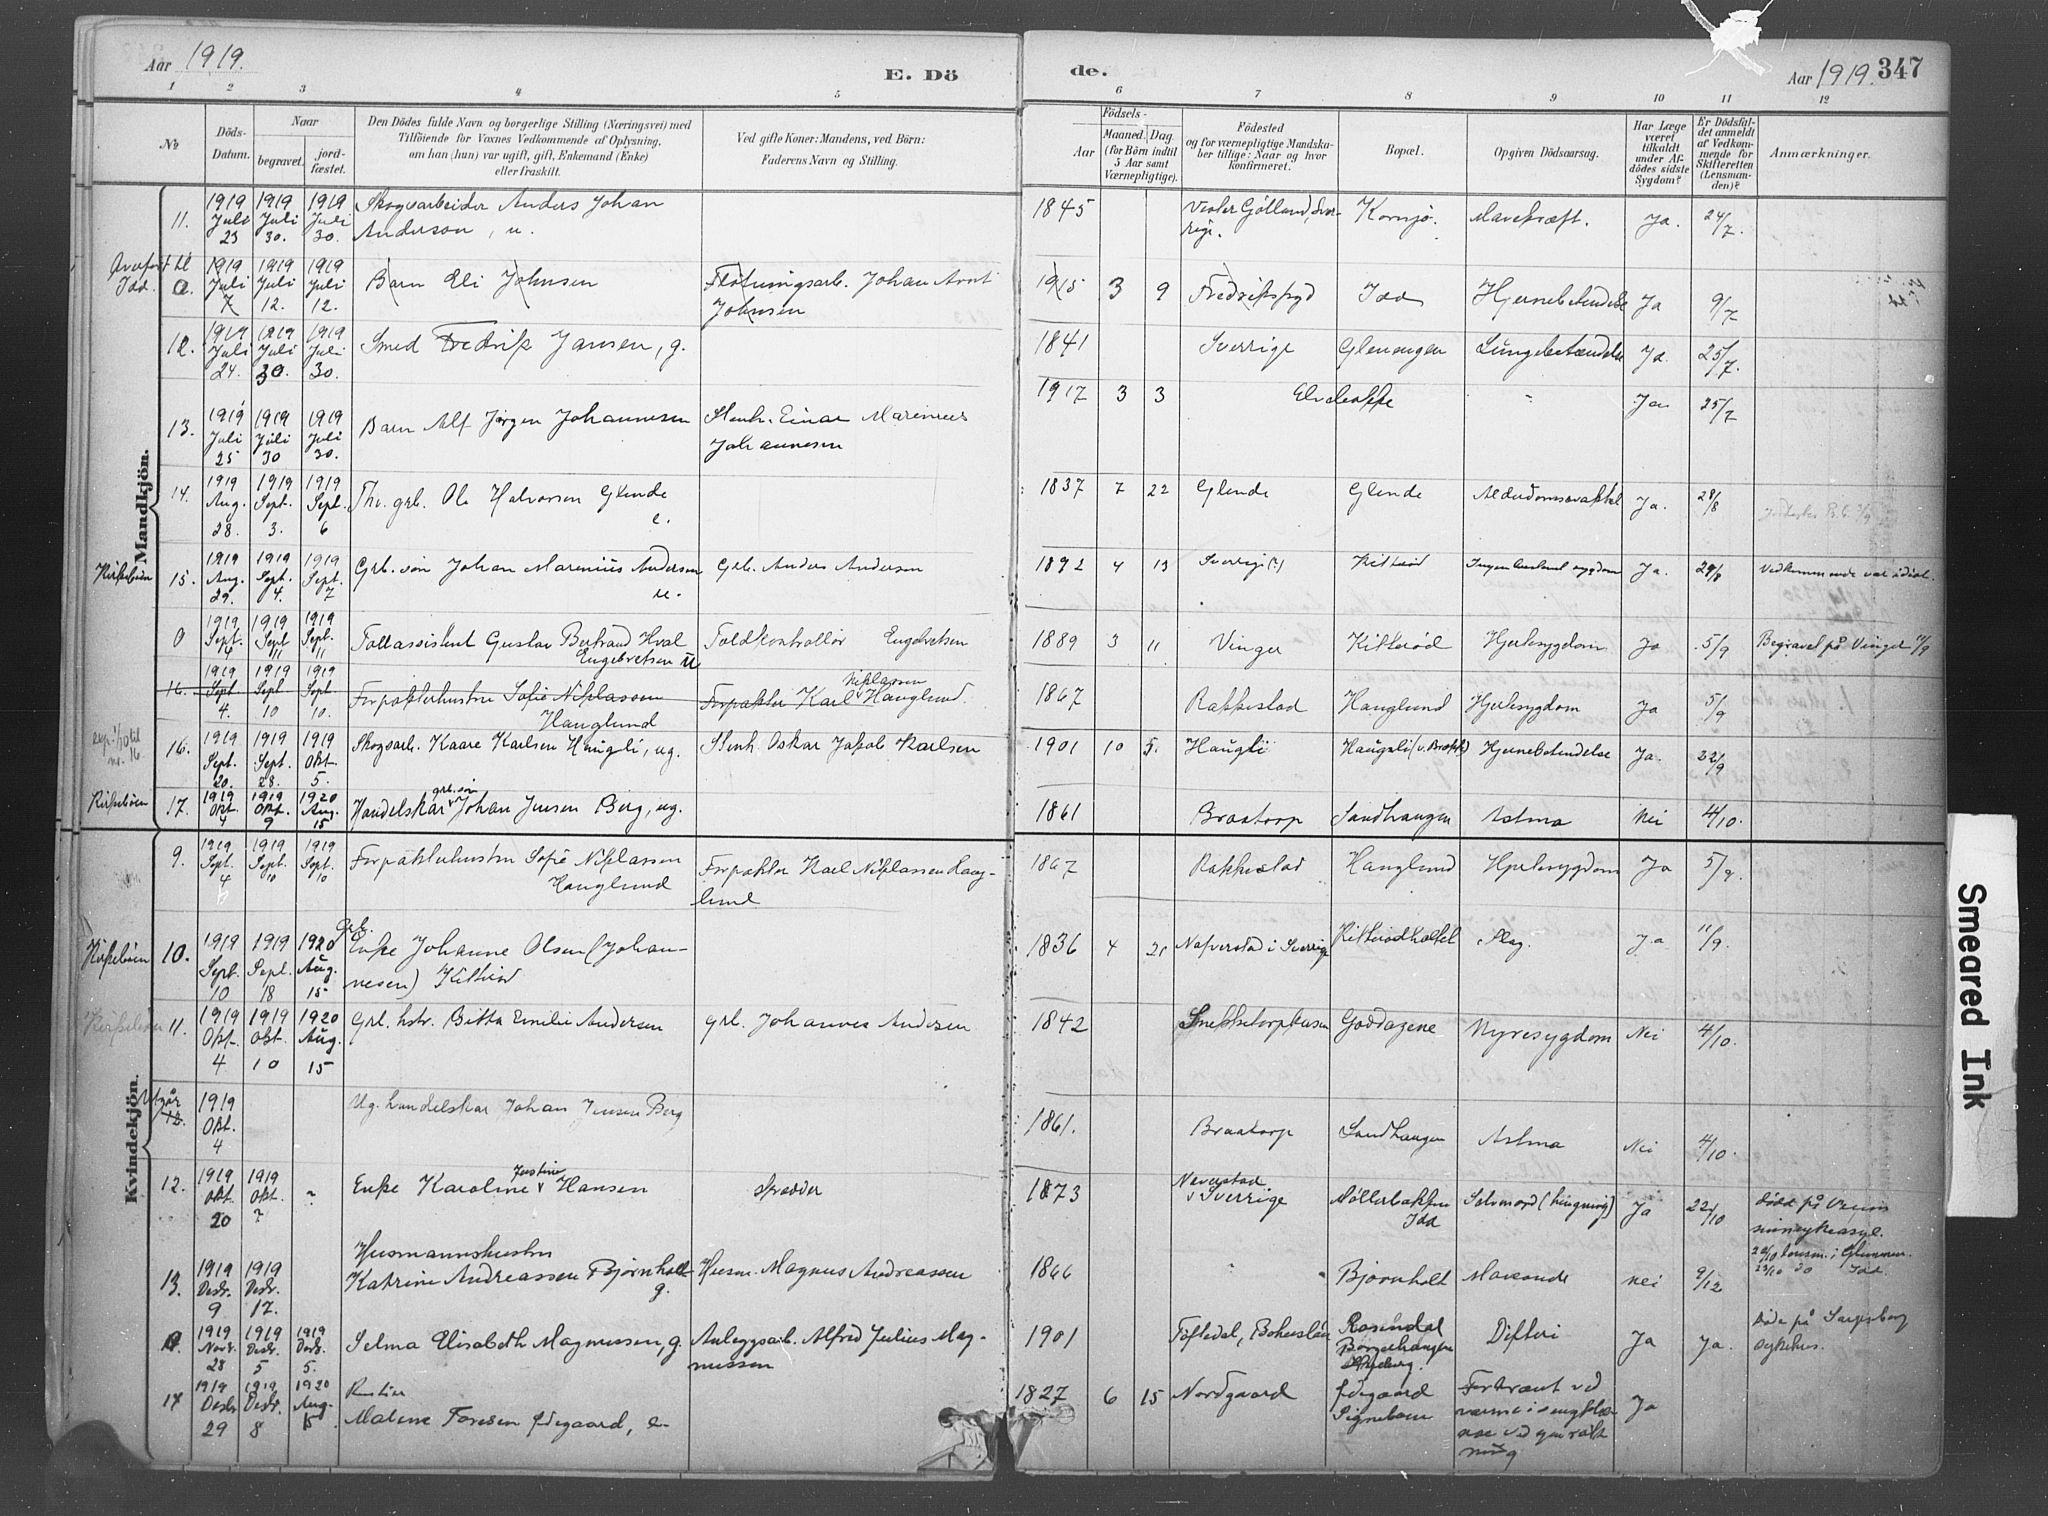 Aar 1919.
E. Dö
de.
Aar 1919. 347
1 2 3 4 5 6 7 8 9 10 11 12
№
Döds-
Datum.
Naar
begravet.
jord-
fæstet.
Den Dödes fulde Navn og borgerlige Stilling (Næringsvei) med
Tilföiende for Voxnes Vedkommende af Oplysning,
om han (hun) var ugift, gift, Enkemand (Enke)
eller fraskilt.
Ved gifte Koner: Mandens, ved Börn:
Faderens Navn og Stilling.
Födsels-
Aar
Maaned. Dag.
(for Börn indtil
5 Aar samt
Værnepligtige).
Födested
og for værnepligtige Mandska-
ber tillige: Naar og hvor
konfirmeret.
Bopæl.
Opgiven Dödsaarsag.
Har Læge
været
tilkaldt
under Af-
dödes sidste
Sygdom?
Er Dödsfal-
det anmeldt
af Vedkom-
mende for
Skifteretten
(Lensman-
den)?
Anmærkninger.
Mandkjön.
11. 1919 Juli 23 1919 Juli 30. 1919 Juli 30. Skogsarbeider Anders Johan
Anderson, u. 1845 Vester Götland, Sver-
rige. Kornsjø. Mavekræft. Ja. 24/7.
Idd. 1919 Juli 7 1919 Juli 12. 1919 Juli 12. Barn Eli Johnsen Fløtningsarb. Johan Arnt
Johnsen 1915 3 9 Idd Hjernebetendelse Ja 9/7
12. 1919 Juli 24. 1919 Juli 30. 1919 Juli 30. Smed Fredrik Jansen, g. 1841 Sverrige Glenengen Lungebetændelse Ja 25/7.
13. 1919 Juli 25 1919 Juli 30 1919 Juli 30. Barn Alf Jørgen Johannesen Stenh. Einar Marinius
Johannesen 1917 3 3 Ja 25/7
14. 1919 Aug. 28. 1919 Sept. 3. 1919 Sept. 6 Fhv. grb. Ole Halvorsen Glende
e. 1837 7 22 Glende Glende Alderdomssvakhet Ja. 28/8
Kirkebøen 15. 1919 Aug. 29. 1919 Sept. 4. 1919 Sept. 7 Grb. søn Johan Marenius Andersen
u. Grb. Anders Andersen 1892 4 13 Sverrige (?) Kitterød Ingen bestemt sygdom Ja. 29/8 Vedkommende var idiot.
0 1919 Sept. 4 1919 Sept 11 1919 Sept. 11 Tollassistent Gustav Bertrand Hval
Engebretsen u Toldkontrollør Engebretsen 1889 3 11 Vinger Kitterød Hjertesygdom Ja 5/9 Begravet på Vinger 11/9
16. 1919 Sept 4. 1919 Sept 10 1919 Sept 10. Forpakterhustru Sofie Niklassen
Hauglund Forpakter Karl Niklassen Hauglund. 1867 Rakkestad Hauglund Hjertesygdom Ja 5/9
16. 1919 Sept. 20. 1919 Sept. 28. 1919 Okt 5. Skogsarb. Kaare Karlsen Haugli, ug. Stenh. Oskar Jakob Karlsen 1901 10 5. Haugli Haugli Hjernebetendelse Ja. 22/9
Kirkebøen 17. 1919 Okt 4 1919 Okt. 9 1920 Aug. 15 Handelskar grb. søn Johan Jensen Berg, ug. 1861 Braatorp Sandhaugen Astma Nei 4/10.
Kvindekjön.
9. 1919 Sept. 4 1919 Sept. 10 1919 Sept. 10 Forpakterhustru Sofie Niklassen
Hauglund Forpakter Karl Niklassen Haug-
lund 1867 Rakkestad Hauglund Hjertesygdom Ja 5/9.
Kirkebøen 10. 1919 Sept. 10 1919 Sept. 18 1920 Aug. 15 Grb.
Enke Johanne Olsen (Johan-
nesen) Kitterød 1836 4 21 Naverstad i Sverrige Kitterødholtet Slag. Ja 11/9.
Kirkebøen 11. 1919 Okt. 4 1919 Okt. 10 1920 Aug. 15 Grb. hstr. Bitta Emilie Andersen grb. Johannes Andersen 1842 Goddagene Nyresygdom Nei 4/10.
Utgår 12. 1919 Okt. 4 Ug. handelskar Johan Jensen Berg 1861. Braatorp Sandhaugen Astma Nei 4/10.
12. 1919 Okt. 20 1919 Okt. ? Enke Karoline Justine Hansen skrædder 1873 Neverstad
Sverrige Møllerbakken
Idd Selvmord (hængning) Ja 22/10 død på
sinnsykeasyl.
22/10 lensm. i Glemmen.
23/10 do Idd.
13. 1919 Desbr. 9 1919 Desbr. 17. Husmannshustru
Katrine Andreassen Bjørnholt
g. Husm. Magnus Andreassen 1866 Bjørnholt Mavesonde nei 9/12
1919 Novbr. 28 1919 Desbr. 5 1919 Desbr. 5. Selma Elisabeth Magnussen, g. Anleggsarb. Alfred Julius Mag-
nussen 1901 Töftedal, Bohuslän Rosendal
Borgerhaugen Difteri Ja Ja. Døde på Sarpsborg
sykehus.
14 1919 Desbr 29 1919 Desbr. 8 1920 Aug. 15 Malene Toresen Ødegaard, e. 1827 6 15 Nordgaard Ødegaard
Signebøen Forbrænt ved
varme i Ja
Smeared Ink